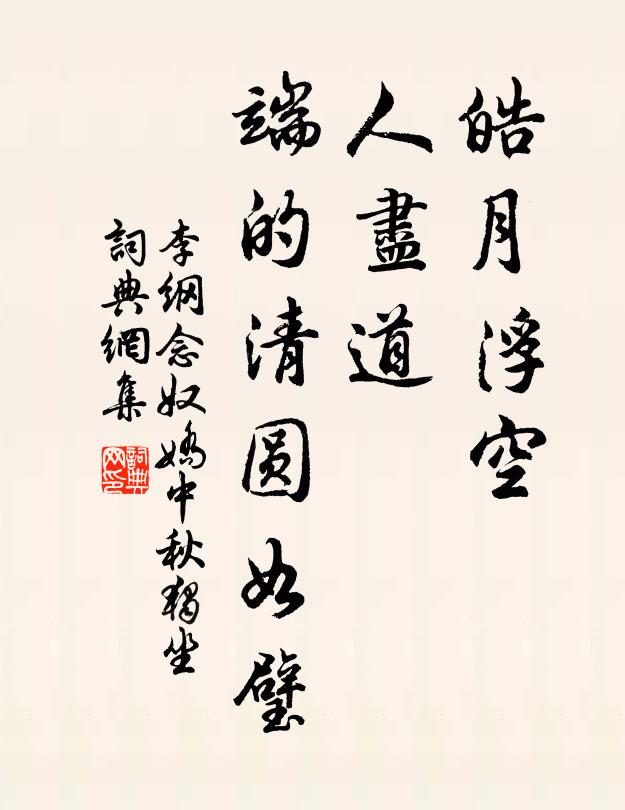 皓月浮空
人盡道
端的清圆如璧
李纲念奴嬌中秋獨坐
詞典網集
詞典网印